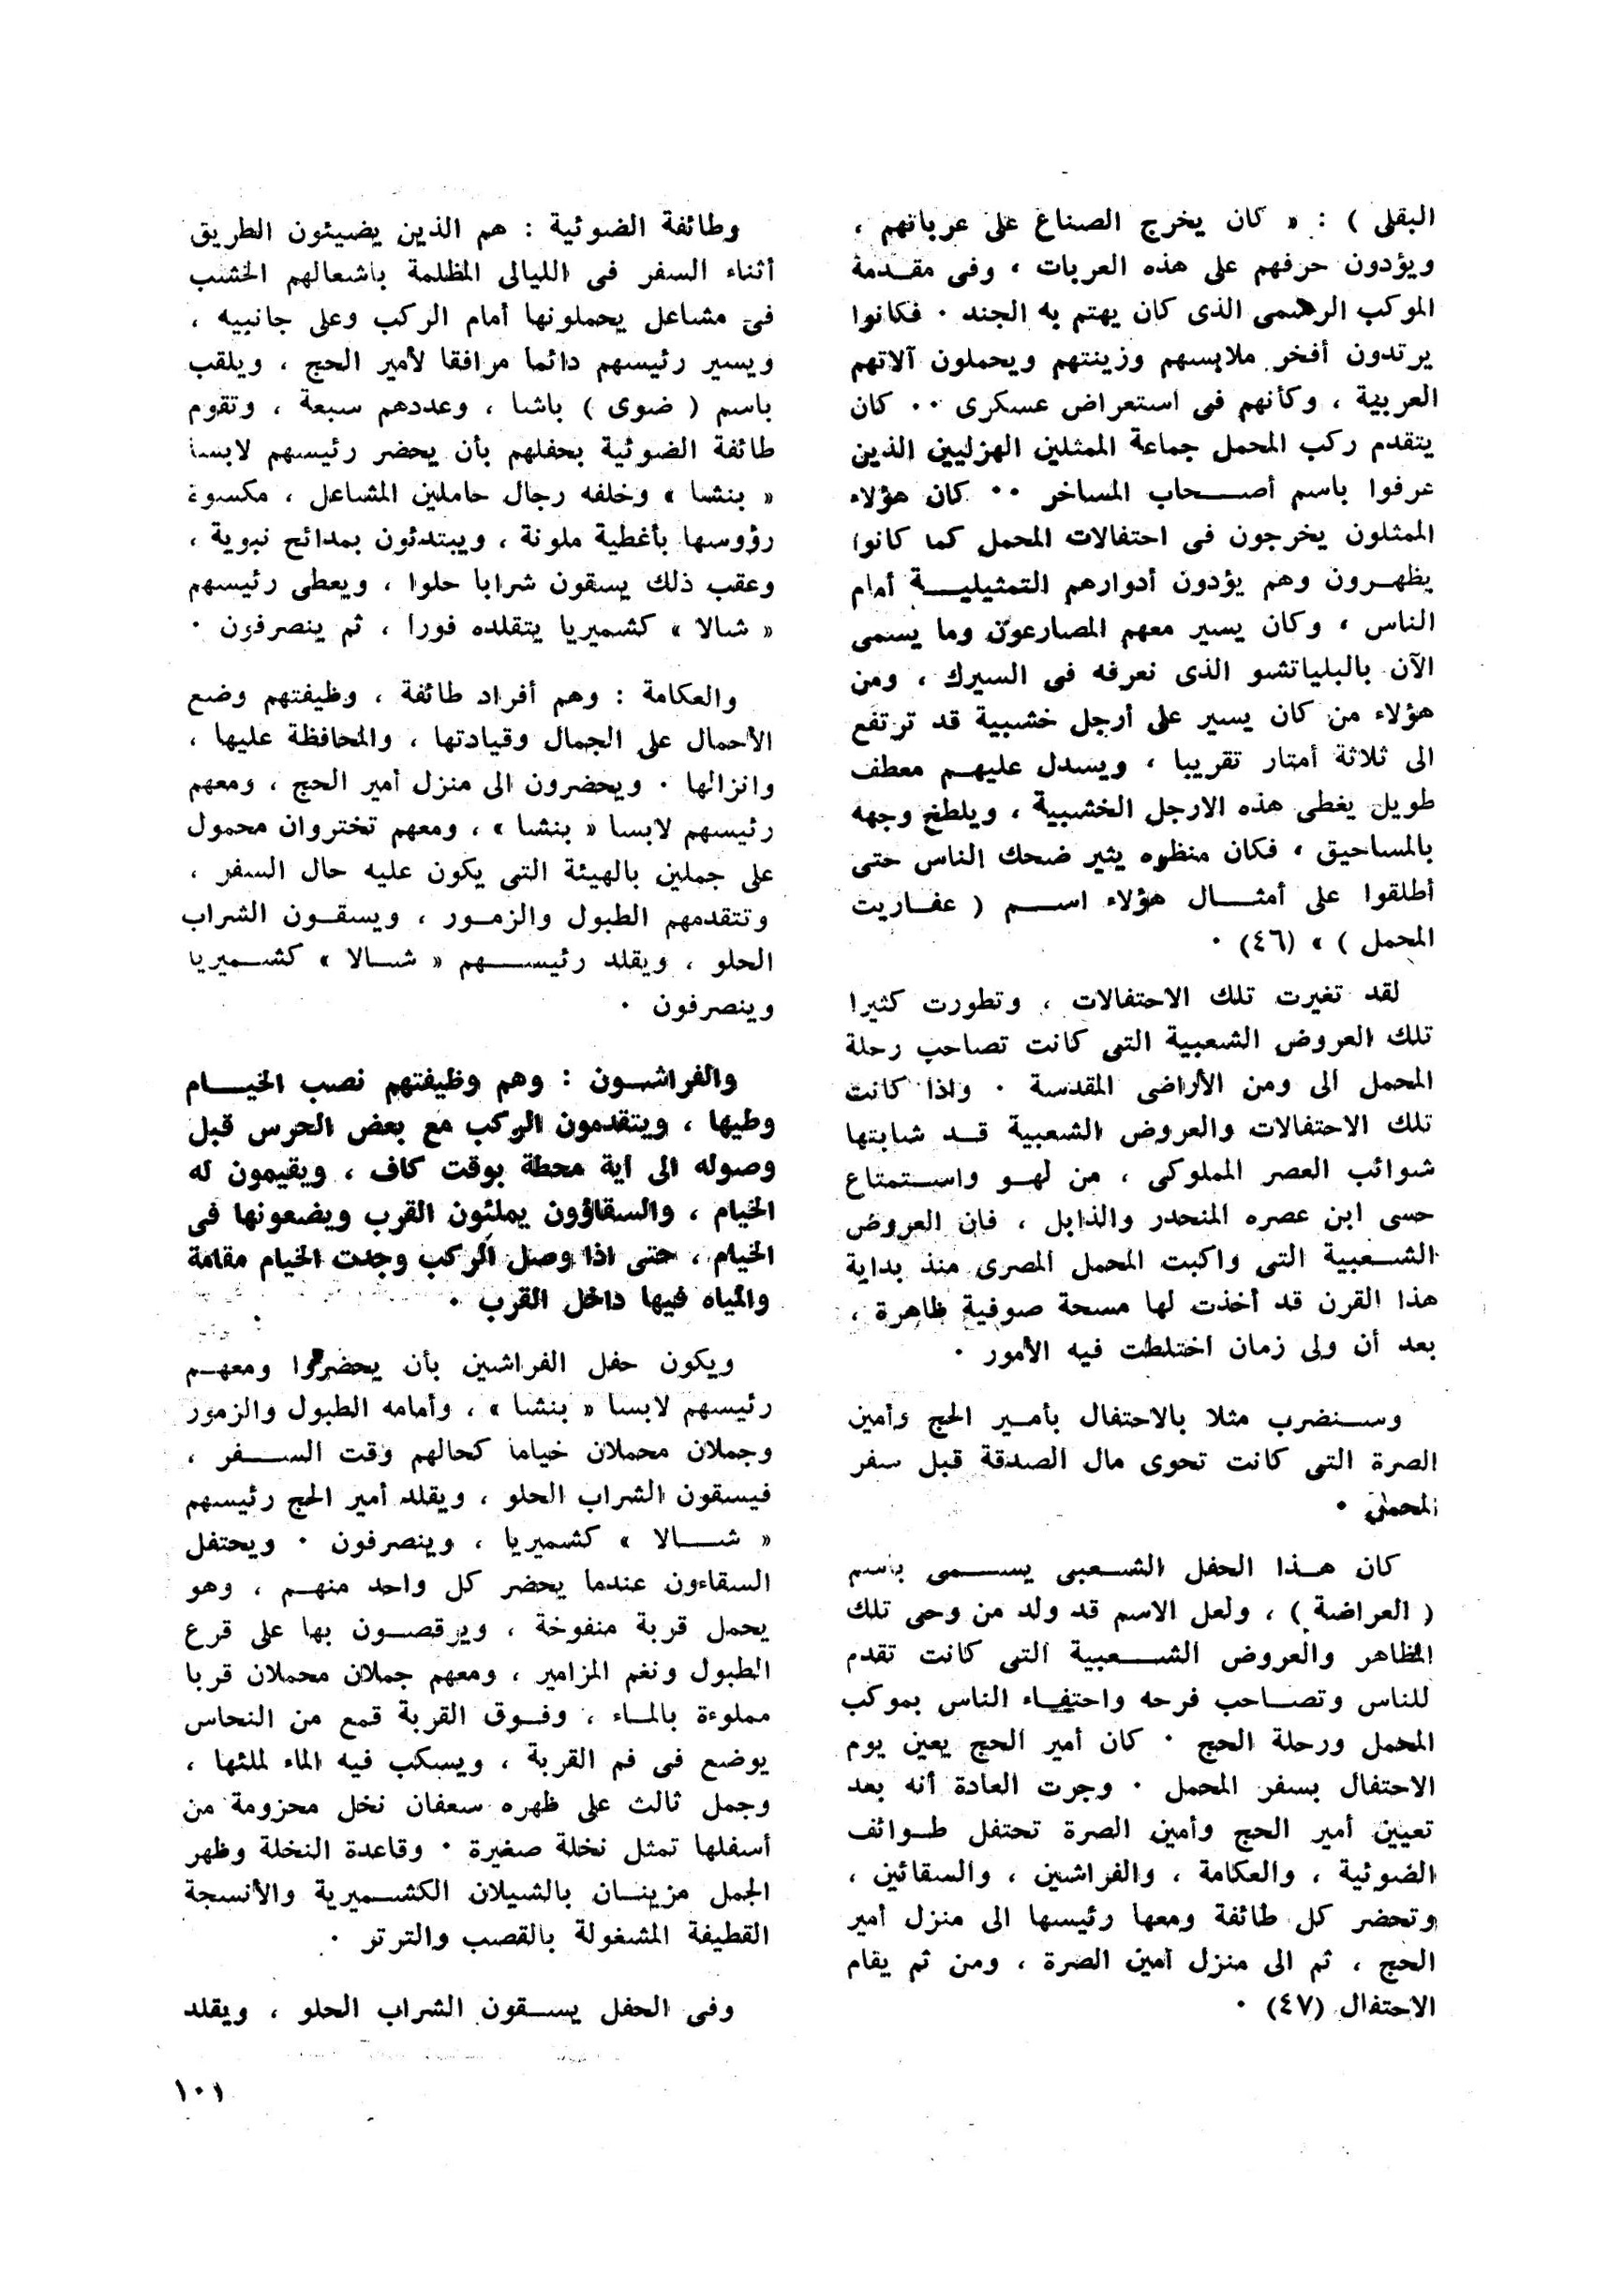 البقلى ) : « كان يخرج الصناع على عرباتهم ،
ويؤدون حرفهم على هذه العربات ، وفى مقدمة
الموكب الرسمى الذى كان يهتم به الجند ٠ فكانوا
يرتدون أفخر ملابسهم وزينتهم ويحملون آلاتهم
العربية ، وكأنهم فى استعراض عسكرى ٠٠ كان
يتقدم ركب المحمل جماعة الممثلين الهزليين الذين
عرفوا باسم أصحاب المساخر ٠٠ كان هؤلاء
الممثلون يخرجون فى احتفالات المحمل كما كانوا
يظهرون وهم يؤدون أدوارهم التمثيلية أمام
الناس ، وكان يسير معهم المصارعون وما يسمى
الآن بالبلياتشو الذى نعرفه فى السيرك ، ومن
هؤلاء من كان يسير على أرجل خشبية قد ترتفع
الى ثلاثة أمتار تقريبا ، ويسدل عليهم معطف
طويل يغطى هذه الارجل الخشبية ، ويلطخ وجهه
بالمساحيق ، فكان منظره يثير ضحك الناس حتى
أطلقوا على أمثال هؤلاء اسم ( عفاريت
المحمل ) » (٤٦) ٠
لقد تغيرت تلك الاحتفالات ، وتطورت كثيرا
تلك العروض الشعبية التى كانت تصاحب رحلة
المحمل الى ومن الأراضى المقدسة ٠ واذا كانت
تلك الاحتفالات والعروض الشعبية قد شابتها
شوائب العصر المملوكى ، من لهو واستمتاع
حسى ابن عصره المنحدر والذابل ، فان العروض
الشعبية التى واكبت المحمل المصرى منذ بداية
هذا القرن قد أخذت لها مسحة صوفية ظاهرة ،
بعد أن ولى زمان اختلطت فيه الأمور ٠
وسنضرب مثلا بالاحتفال بأمير الحج وأمين
الصرة التى كانت تحوى مال الصدقة قبل سفر
المحمل ٠
كان هذا الحفل الشعبى يسمى باسم
( العراضة ) ، ولعل الاسم قد ولد من وحى تلك
المظاهر والعروض الشعبية التى كانت تقدم
للناس وتصاحب فرحه واحتفاء الناس بموكب
المحمل ورحلة الحج ٠ كان أمير الحج يعين يوم
الاحتفال بسفر المحمل ٠ وجرت العادة أنه بعد
تعيين أمير الحج وأمين الصرة تحتفل طوائف
الضوئية ، والعكامة ، والفراشين ، والسقائين ،
وتحضر كل طائفة ومعها رئيسها الى منزل أمير
الحج ، ثم الى منزل أمين الصرة ، ومن ثم يقام
الاحتفال (٤٧) ٠
وطائفة الضوئية : هم الذين يضيئون الطريق
أثناء السفر فى الليالى المظلمة باشعالهم الخشب
فى مشاعل يحملونها أمام الركب وعلى جانبيه ،
ويسير رئيسهم دائما مرافقا لأمير الحج ، ويلقب
باسم ( ضوى ) باشا ، وعددهم سبعة ، وتقوم
طائفة الضوئية بحفلهم بأن يحضر رئيسهم لابسا
« بنشا » وخلفه رجال حاملين المشاعل ، مكسوة
رؤوسها بأغطية ملونة ، ويبتدئون بمدائح نبوية ،
وعقب ذلك يسقون شرابا حلوا ، ويعطى رئيسهم
« شالا » كشميريا يتقلده فورا ، ثم ينصرفون ٠
والعكامة : وهم أفراد طائفة ، وظيفتهم وضع
الأحمال على الجمال وقيادتها ، والمحافظة عليها ،
وانزالها ٠ ويحضرون الى منزل أمير الحج ، ومعهم
رئيسهم لابسا « بنشا » ، ومعهم تختروان محمول
على جملين بالهيئة التى يكون عليه حال السفر ،
وتتقدمهم الطبول والزمور ، ويسقون الشراب
الحلو ، ويقلد رئيسهم « شالا » كشميريا
وينصرفون ٠
والفراشون : وهم وظيفتهم نصب الخيام
وطيها ، ويتقدمون الركب مع بعض الحرس قبل
وصوله الى أية محطة بوقت كاف ، ويقيمون له
الخيام ، والسقاؤون يملئون القرب ويضعونها فى
الخيام ، حتى اذا وصل الركب وجدت الخيام مقامة
والمياه فيها داخل القرب ٠
ويكون حفل الفراشين بأن يحضروا ومعهم
رئيسهم لابسا « بنشا » ، وأمامه الطبول والزمور
وجملان محملان خياما كحالهم وقت السفر ،
فيسقون الشراب الحلو ، ويقلد أمير الحج رئيسهم
« شالا » كشميريا ، وينصرفون ٠ ويحتفل
السقاءون عندما يحضر كل واحد منهم ، وهو
يحمل قربة منفوخة ، ويرقصون بها على قرع
الطبول ونغم المزامير ، ومعهم جملان محملان قربا
مملوءة بالماء ، وفوق القربة قمع من النحاس
يوضع فى فم القربة ، ويسكب فيه الماء لملئها ،
وجمل ثالث على ظهره سعفان نخل محزومة من
أسفلها تمثل نخلة صغيرة ٠ وقاعدة النخلة وظهر
الجمل مزينان بالشيلان الكشميرية والأنسجة
القطيفة المشغولة بالقصب والترتر ٠
وفى الحفل يسقون الشراب الحلو ، ويقلد
١٠١